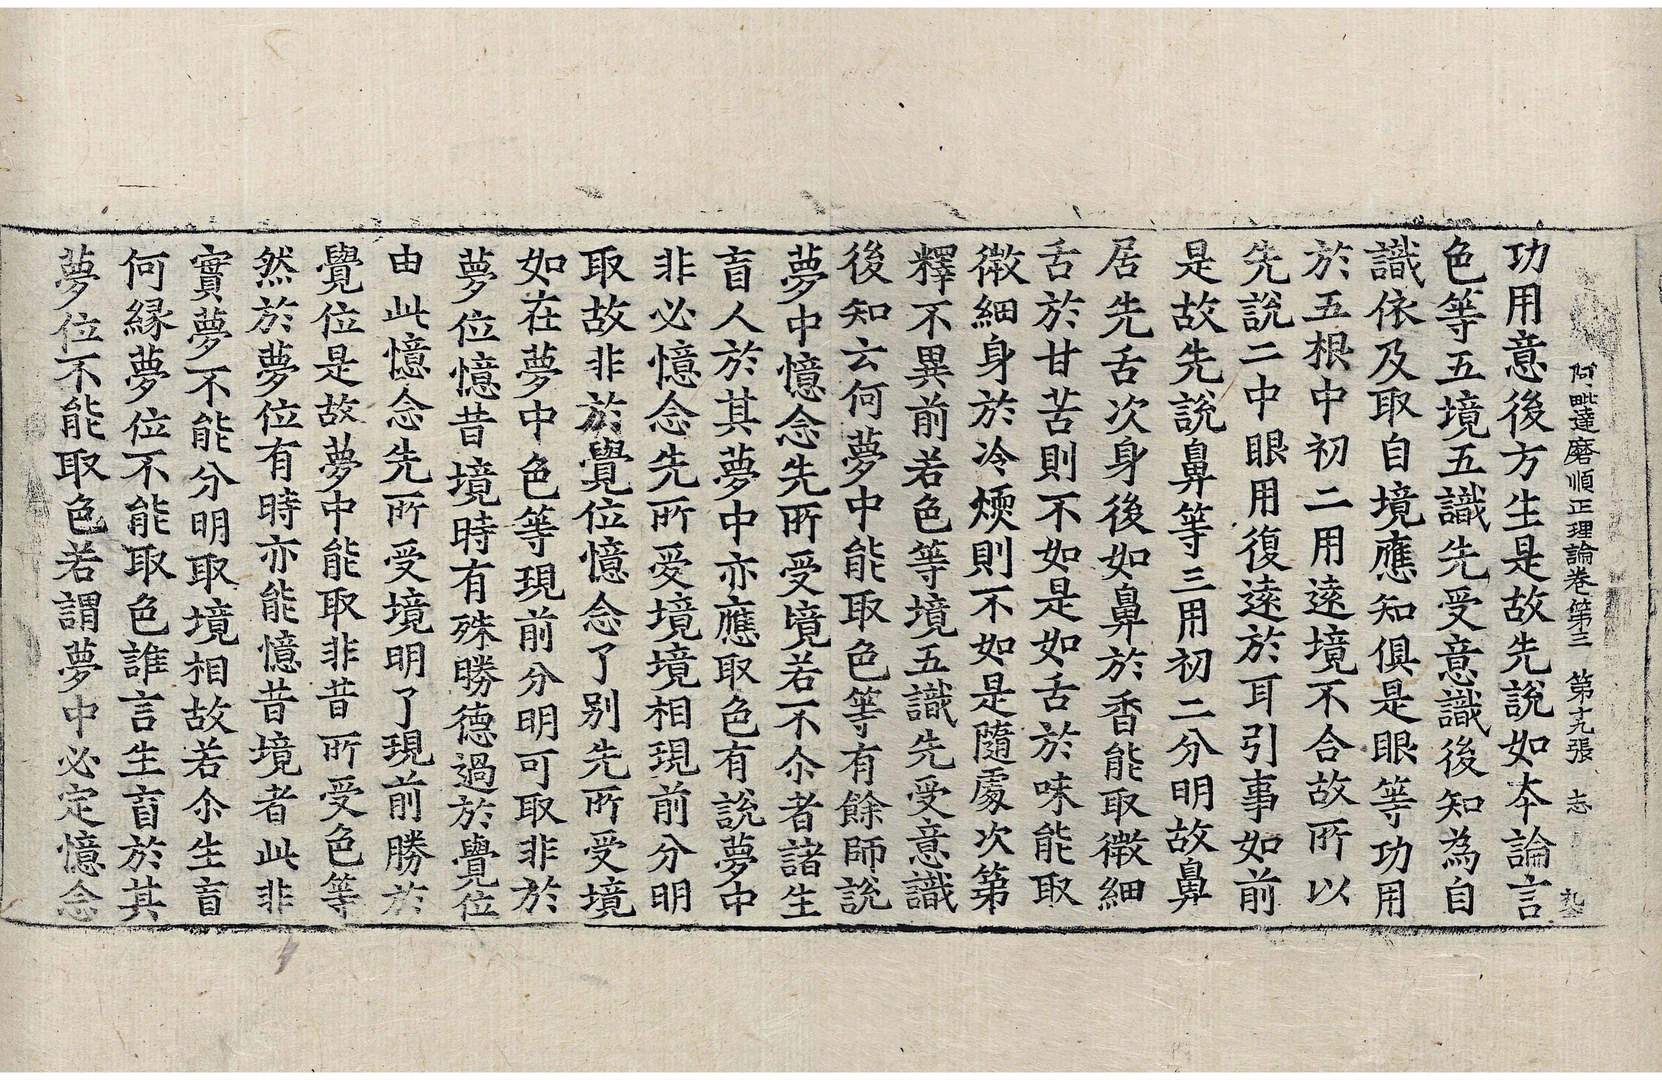 阿毗達磨順正理論卷第三 第十九張 志
功用意後方生是故先說如夲論言
色等五境五識先受意識後知為自
識依及取自境應知俱是眼等功用
於五根中初二用遠境不合故所以
先說二中眼用復遠於耳引事如前
是故先說鼻等三用初二分明故鼻
居先舌次身後如鼻於香能取微細
舌於甘苦則不如是如舌於味能取
微細身於冷煗則不如是隨處次第
釋不異前若色等境五識先受意識
後知云何夢中能取色等有餘師說
夢中憶念先所受境若不尒者諸生
盲人於其夢中亦應取色有說夢中
非必憶念先所受境境相現前分明
取故非於覺位憶念了別先所受境
如在夢中色等現前分明可取非於
夢位憶昔境時有殊勝德過於覺位
由此憶念先所受境明了現前勝於
覺位是故夢中能取非昔所受色等
然於夢位有時亦能憶昔境者此非
實夢不能分明取境相故若尒生盲
何緣夢位不能取色誰言生盲於其
夢位不能取色若謂夢中必定憶念